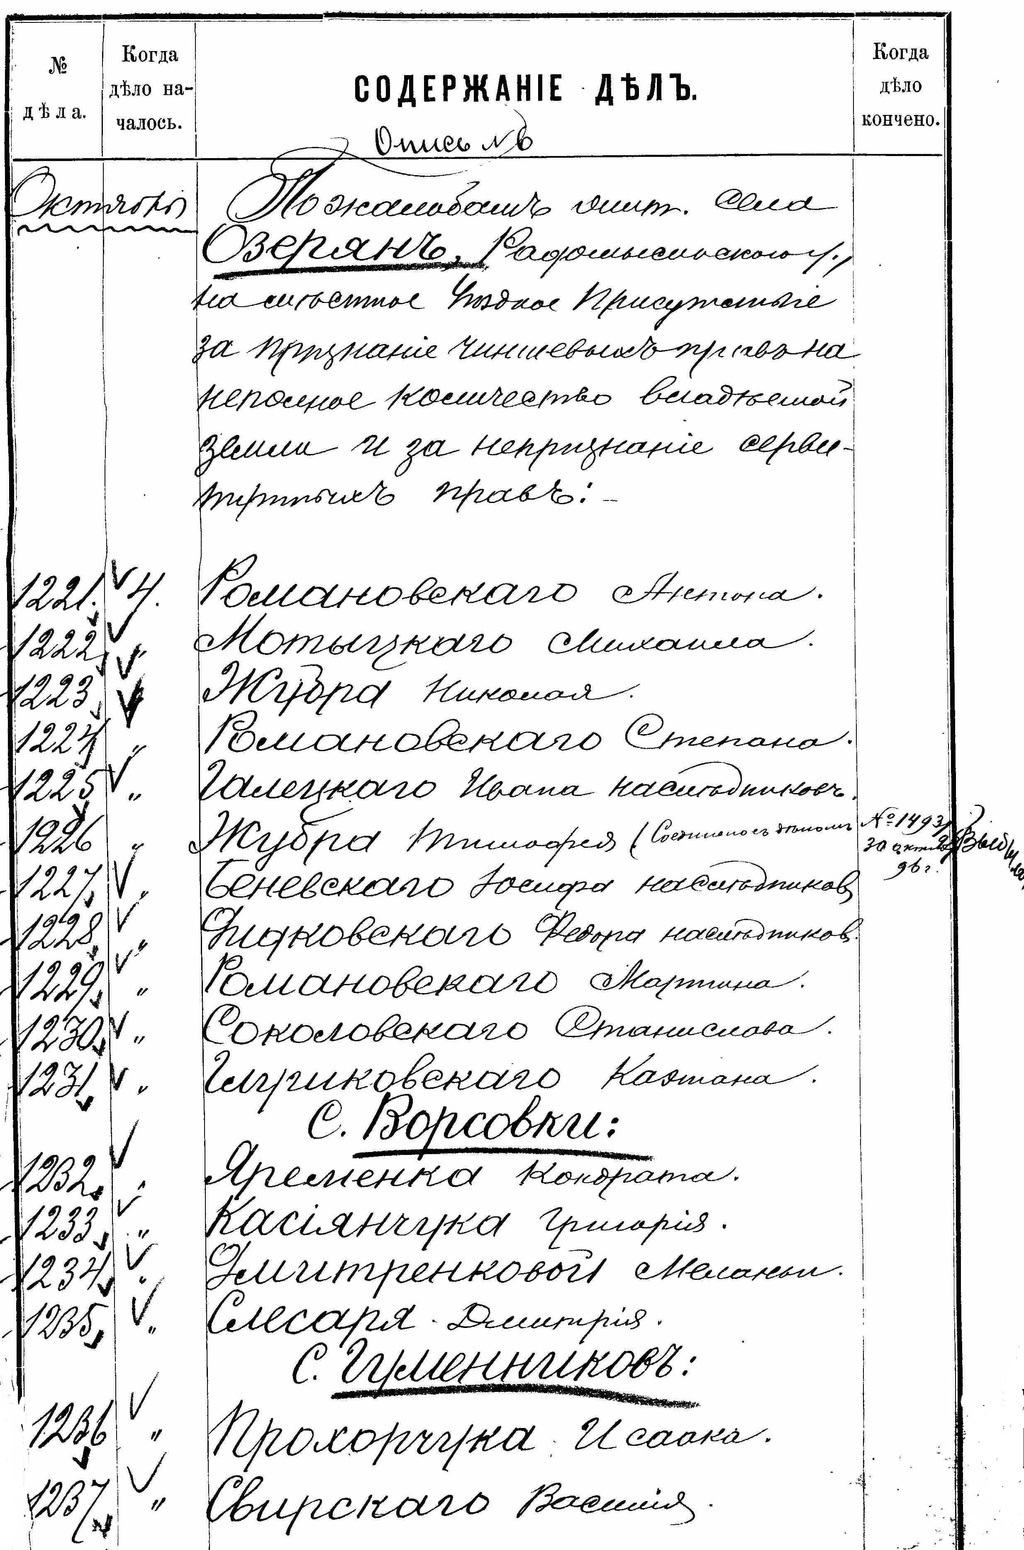 № дѣла.
Когда дѣло началось.
СОДЕРЖАНІЕ ДѢЛЪ.
Когда дѣло кончено.
Опись №
По жалобамъ жит. села
Озерянъ, Радомысльскаго у.,
на мѣстное Уѣздное Присутствіе
за признаніе чиншевыхъ правъ на
неполное количество владѣемой
земли и за непризнаніе серви-
тутныхъ правъ: -
1221. 4. Романовскаго Антона.
1222 „ Мотыцкаго Михаила.
1223 Жубра Николая.
1224 „ Романовскаго Степана.
1225 „ Галецкаго Ивана наслѣдниковъ.
1226 „ Жубра Тимофея (Соединено съ дѣломъ № 1493)
30 октяб. 96 г.
1227 „ Беневскаго Іосифа наслѣдников
1228 „ Дидковскаго Федора наслѣдников.
1229 „ Романовскаго Мартина.
1230 „ Соколовскаго Станислава.
1231 „ Гиуриковскаго Каэтана.
С. Ворсовки:
1232 „ Яременка Кондрата.
1233 „ Касіянчука Григорія.
1234 „ Дмитренковой Меланьи.
1235 „ Слесаря Дмитрія.
С. Гуменниковъ:
1236 „ Прохорчука Исаака.
1237 „ Свирскаго Василія.